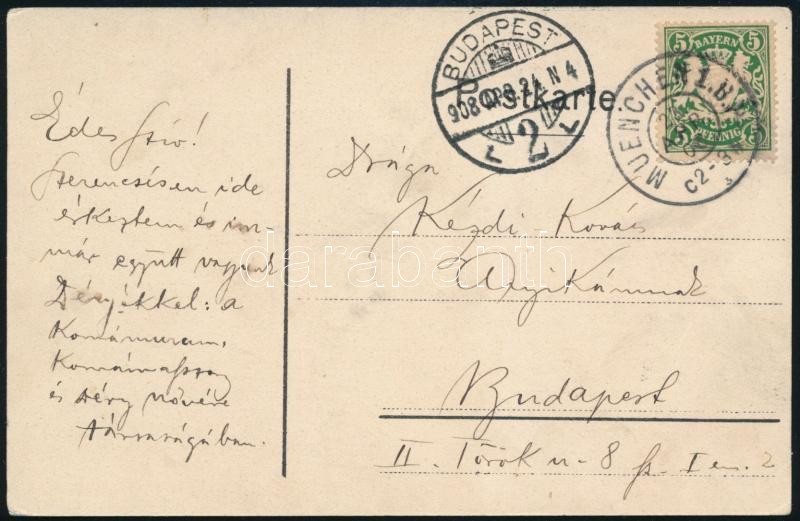 Postkarte.
BUDAPEST
908 APR. 24 N 4
2
L L
MUENCHEN 1. B.P.
5 BAYERN 5
5 PFENNIG 5
Édes Szív!
Szerencsésen ide
érkeztem és im-
már együtt vagyunk
Déryékkel: a
Komámuram,
Komámasszony
és Déry nővére
társaságában.
Drága
Kézdi Kovács
Anyikámnak
Budapest
II. Török u. 8 fsz. I em. 2
darabanth